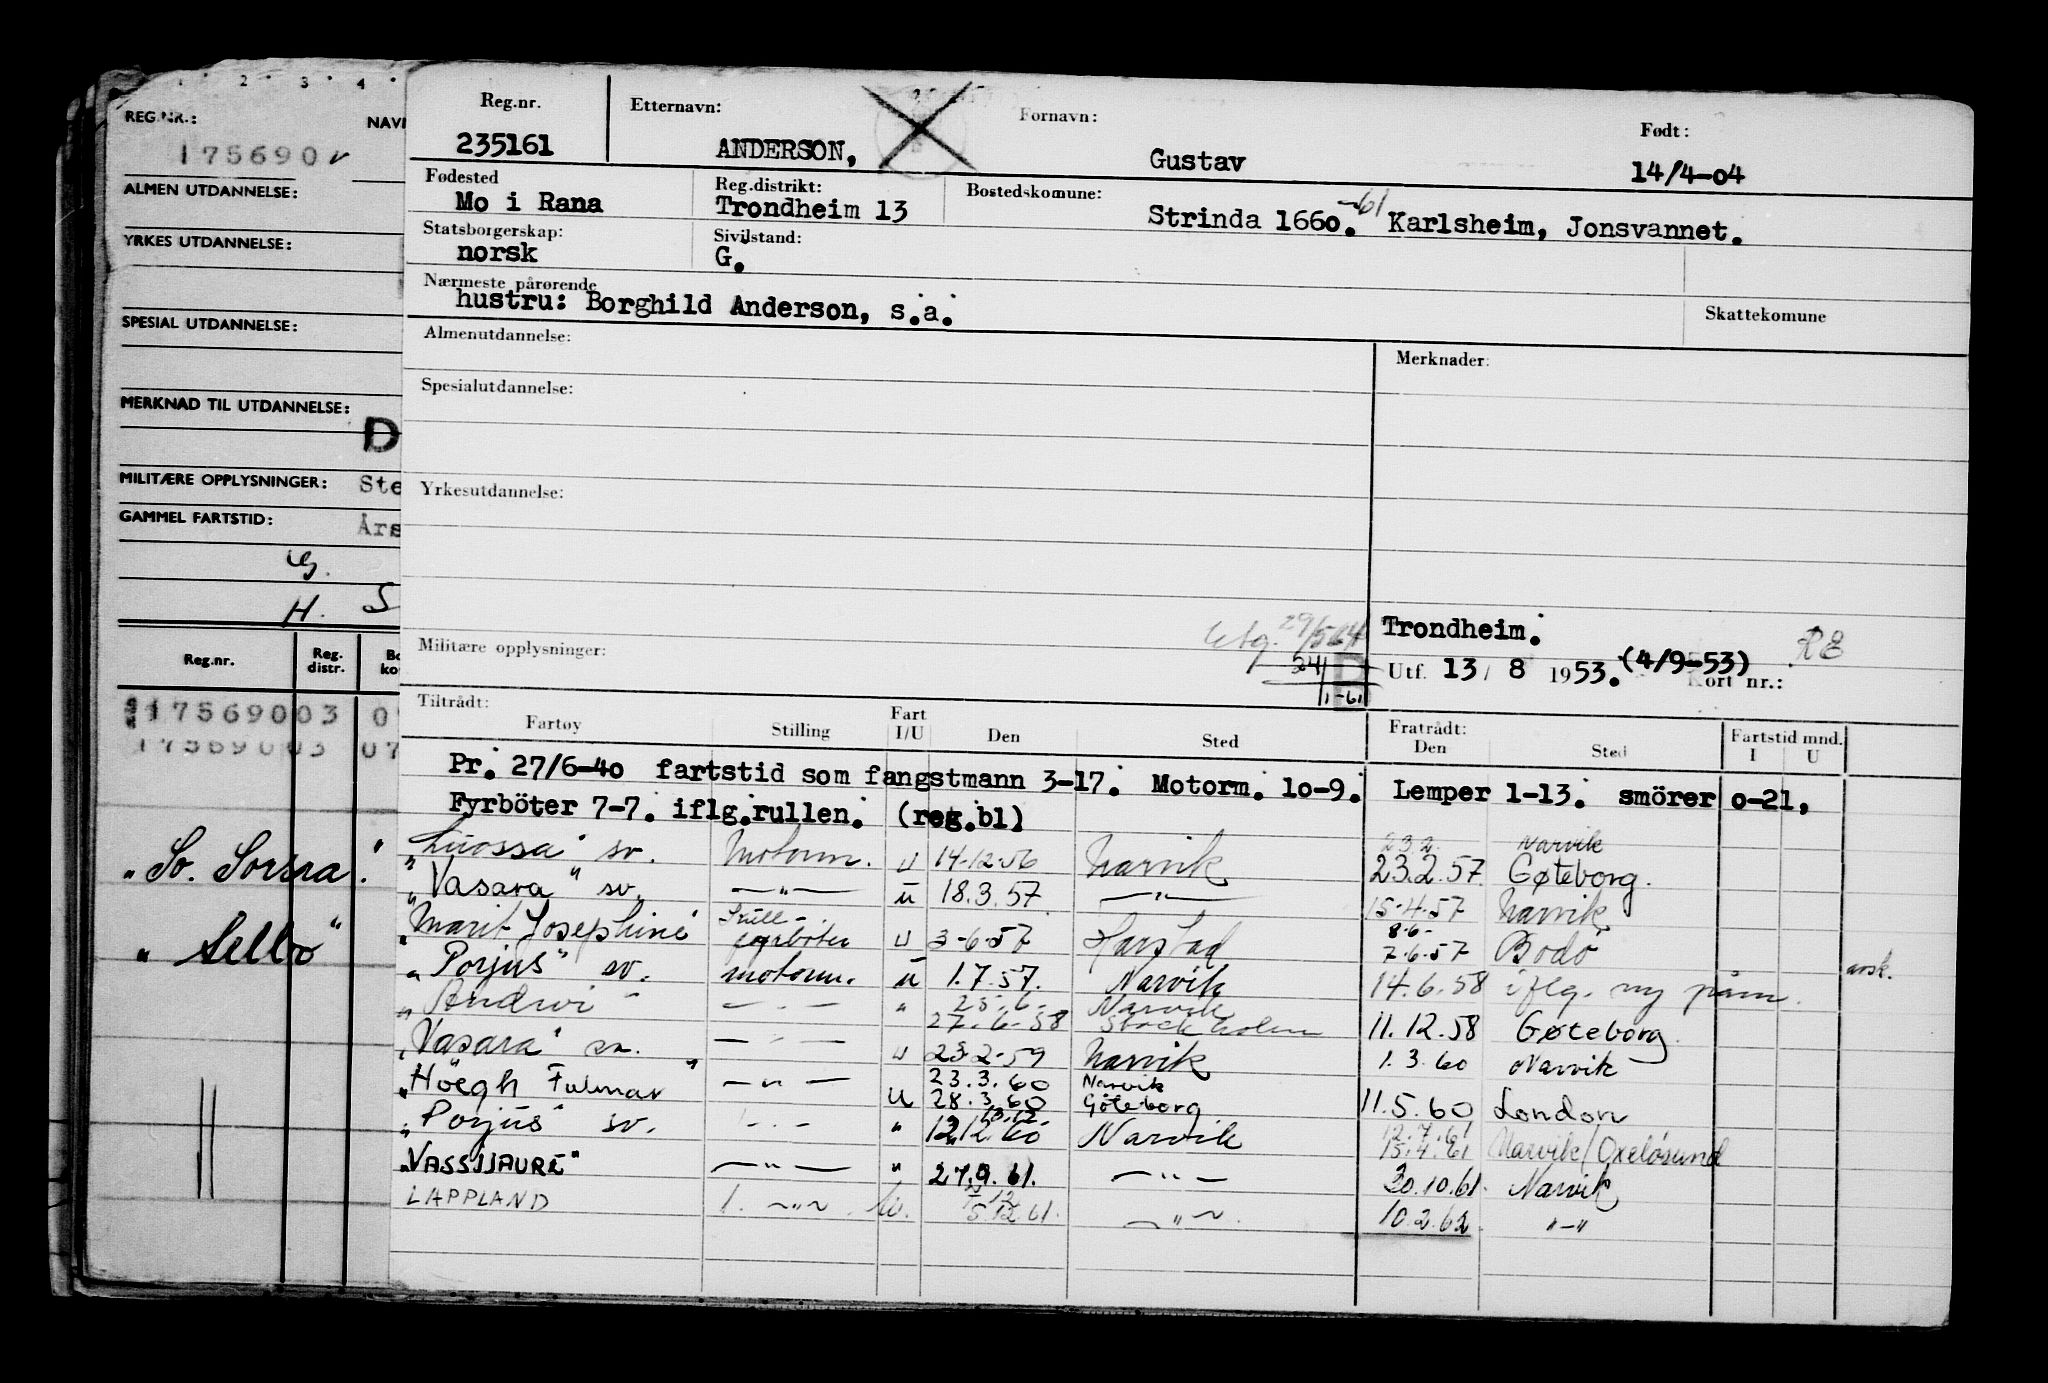 1 2 3 4
REG.NR.: NAV
175690
ALMEN UTDANNELSE:
YRKES UTDANNELSE:
SPESIAL UTDANNELSE:
MERKNAD TIL UTDANNELSE:
D
MILITÆRE OPPLYSNINGER: Ste
GAMMEL FARTSTID: Års
G.
H. S
Reg.nr. Reg. distr. Bo ko
17569003 0
17569003 07
"So. Sorsra."
"Sello"
Reg.nr. Etternavn: Fornavn: Født:
235161 ANDERSON, Gustav 14/4-04
Fødested Reg.distrikt: Bostedskomune:
Mo i Rana Trondheim 13 Strinda 1660. -61 Karlsheim, Jonsvannet.
Statsborgerskap: Sivilstand:
norsk G.
Nærmeste pårørende
hustru: Borghild Anderson, s.a. Skattekomune
Almenutdannelse: Merknader:
Spesialutdannelse:
Yrkesutdannelse:
Trondheim.
Militære opplysninger: 241 1-61 Utf. 13/ 8 1953. (4/9-53) Kort nr.: RE
Tiltrådt: Fratrådt: Fartstid mnd.
Fartøy Stilling Fart I/U Den Sted Den Sted I U
Pr. 27/6-40 fartstid som fangstmann 3-17. Motorm. 10-9. Lemper 1-13. smörer 0-21,
Fyrböter 7-7. iflg.rullen. (reg.bl)
23.2. Narvik
"Luossa" sv. Motorm. U 14-12-56 Narvik 23.2.57. Gøteborg.
"Vasara" sv. —"— u 18.3.57 —"— 15.4.57 Narvik
8.6-
"Marit Josephine" Lull- fyrböter U 3-6-57 Harstad 7.6.57 Bodö
"Porjus" sv. motorm. u 1.7.57. Narvik 14.6.58 iflg. ny påm. avsk.
25.6. Narvik
"Andwi" —"— " 27.6-58 Stockholm 11.12.58 Gøteborg.
"Vasara" sv. —"— U 23.2-59 Narvik 1.3.60 Narvik
23.3.60 Narvik
"Höegh Fulmar" —"— U 28.3.60 Göteborg 11.5.60 London
13.12. 12.7.61
"Porjus" sv. —"— " 12.12.60 Narvik 15.4.61 Narvik/Oxelösund
"VASSIJAURE" —"— " 27.9.61. —"— 30.10.61. Narvik
LAPPLAND 1. —"— U. 15.12.61. —"— 10.2.62 "—"